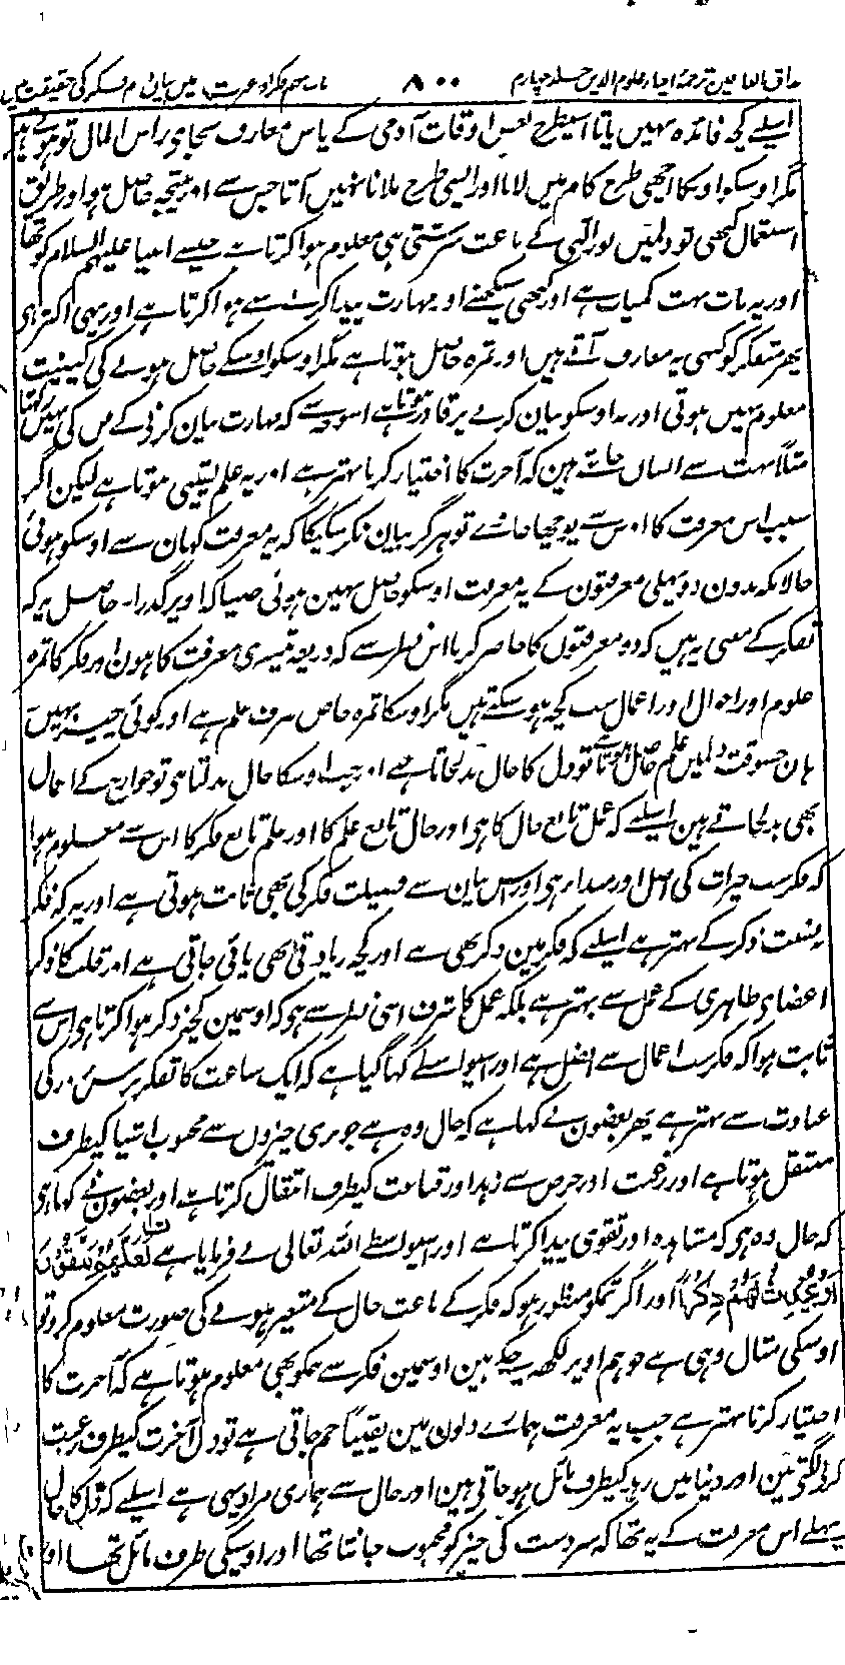 مذاق العارفین ترجمہ احیاء علوم الدین جلد چہارم ۸۰۰ باب نہم فکر اور عبرت میں بیان دوم فکر کی حقیقت میں
اسلیے کچھ فائدہ نہیں پاتا اسیطرح بعض اوقات آدمی کے پاس معارف بجای راس المال تو ہوتے ہیں
مگر اوسکو اونکا اچھی طرح کام میں لانا اور ایسی طرح ملانا نہیں آتا جس سے اور نتیجہ حاصل ہو اور طریق
استعمال کبھی تو دلمیں نور الٰہی کے باعث سرشتی ہی معلوم ہوا کرتا ہے جیسے انبیا علیہم السلام کو تھا
اور یہ بات بہت کمیاب ہے اور کبھی سیکھنے اور مہارت پیدا کرنے سے ہوا کرتا ہے اور یہی اکثر ہی
پھر متفکر کو کبھی یہ معارف آتے ہیں اور ثمرہ حاصل ہوتا ہے مگر اوسکو اوسکے حاصل ہونے کی کیفیت
معلوم نہیں ہوتی اور نہ اوسکو بیان کرنے پر قادر ہوتا ہے اسوجہ سے کہ مہارت بیان کرنے کے فن کی نہیں رکھتا
مثلاً بہت سے انسان جانتے ہین کہ آخرت کا اختیار کرنا بہتر ہے اور یہ علم یقینی ہوتا ہے لیکن اگر
سبب اس معرفت کا اون سے پوچھا جائے تو ہرگز بیان نکر سکیگا کہ یہ معرفت کہان سے اوسکو ہوئی
حالانکہ بدون دو پہلی معرفتون کے یہ معرفت اوسکو حاصل نہین ہوئی جیسا کہ اوپر گذرا۔ حاصل یہ کہ
تفکر کے معنی یہ ہیں کہ دو معرفتوں کا حاضر کرنا اس نظر سے کہ ذریعہ تیسری معرفت کا ہون اور فکر کا ثمرہ
علوم اور احوال اور اعمال سب کچھ ہو سکتے ہیں مگر اوسکا ثمرہ خاص صرف علم ہے اور کوئی چیز نہیں
ہان جسوقت دلمیں علم حاصل ہوتا ہے تو دل کا حال بدلجاتا ہے اور جب اوسکا حال بدلتا ہی تو جوارح کے اعمال
بھی بدلجاتے ہین اسلیے کہ عمل تابع حال کا ہی اور حال تابع علم کا اور علم تابع فکر کا اس سے معلوم ہوا
کہ فکر سب خیرات کی اصل اور مبداء ہی اور اس بیان سے فضیلت فکر کی بھی ثابت ہوتی ہے اور یہ کہ فکر
بہ نسبت ذکر کے بہتر ہے اسلیے کہ فکر مین ذکر بھی ہے اور کچھ زیادتی بھی پائی جاتی ہے اور قلب کا ذکر
اعضای ظاہری کے عمل سے بہتر ہے بلکہ عمل کا شرف اسی نظر سے ہی کہ اوسمین کچھ ذکر ہوا کرتا ہی اس سے
ثابت ہوا کہ فکر سب اعمال سے افضل ہے اور اسیواسطے کہا گیا ہے کہ ایک ساعت کا تفکر برس دن کی
عبادت سے بہتر ہے پھر بعضون نے کہا ہے کہ حال وہ ہے جو بری چیزوں سے محبوب اشیا کیطرف
منتقل ہوتا ہے اور رغبت اور حرص سے زہد اور قناعت کیطرف انتقال کرتا ہے اور بعضون نے کہا ہی
کہ حال وہ ہی کہ مشاہدہ اور تقوی پیدا کرتا ہے اور اسیواسطے اللہ تعالی نے فرمایا ہے لَعَلَّهُمْ يَتَّقُوْنَ
اَوْ يُحْدِثُ لَهُمْ ذِكْرًا اور اگر تمکو منظور ہو کہ فکر کے باعث حال کے متغیر ہونے کی صورت معلوم کرو تو
اوسکی مثال وہی ہے جو ہم اوپر لکھ چکے ہین اوسمین فکر سے ہمکو بھی معلوم ہوتا ہے کہ آخرت کا
اختیار کرنا بہتر ہے جب یہ معرفت ہمارے دلون مین یقیناً جم جاتی ہے تو دل آخرت کیطرف رغبت
کرنے لگتے ہین اور دنیا میں زہد کیطرف مائل ہو جاتی ہین اور حال سے ہماری مراد یہی ہے اسلیے کہ دل کا حال
پہلے اس معرفت کے یہ تھا کہ سر دست کی چیز کو محبوب جانتا تھا اور اوسیکی طرف مائل تھا اور